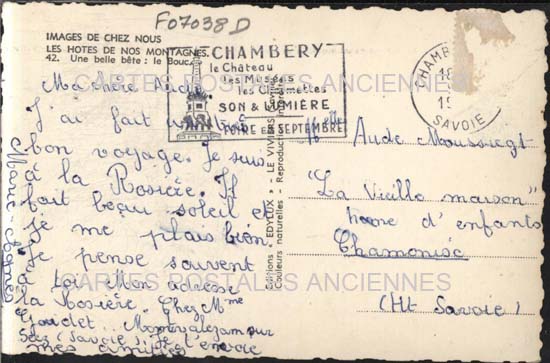 F07038D
IMAGES DE CHEZ NOUS
LES HOTES DE NOS MONTAGNES.
42. Une belle bête : le Bouc.
CHAMBERY
le Château
les Musées
les Charmettes
SON & LUMIÈRE
FOIRE EN SEPTEMBRE
CHAMBERY
18
SAVOIE
CARTES POSTALES ANCIENNES
Ma chère Aude
J'ai fait un très
bon voyage. Je suis
à la Rosière. Il
fait beau soleil et
je me plais bien
Je pense souvent
à toi Mon adresse
la Rosière. Chez Mme
Gaudet
Séez (Savoie) Je t'envoie
mes amitiés
Marie-Agnès
Editions "EDYLUX" - LE VIVIERS
Couleurs naturelles Reproduction
Melle Aude
"La Vieille maison"
home d'enfants
Chamonix
(Ht Savoie)
CARTES POSTALES ANCIENNES